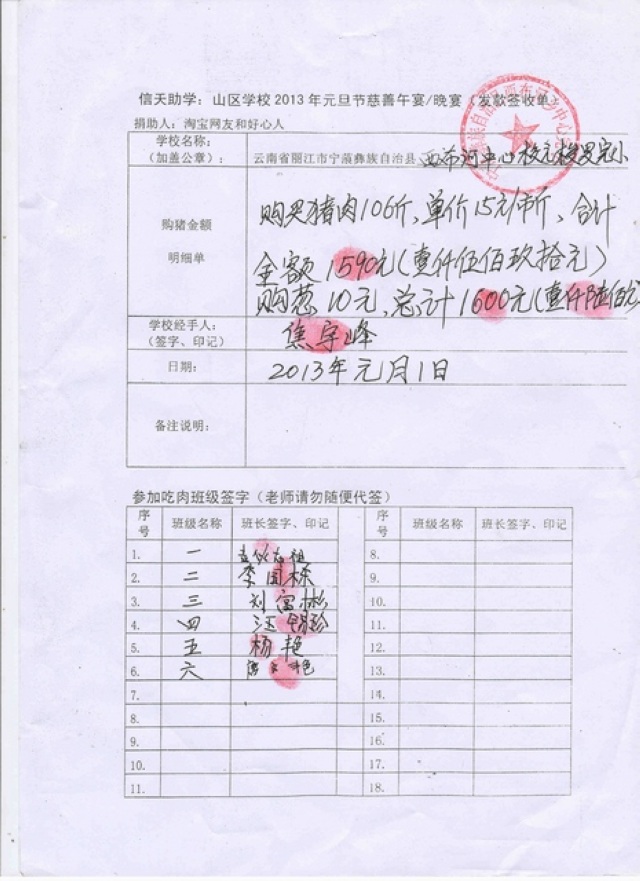 信天助学：山区学校2013年元旦节慈善午宴/晚宴（发款签收单）
捐助人：淘宝网友和好心人
学校名称：
（加盖公章）：
云南省丽江市宁蒗彝族自治县 西布河中心校元梭罗完小
购猪金额
明细单
购买猪肉106斤，单价15元/市斤，合计
金额1590元（壹仟伍佰玖拾元）
购葱10元，总计1600元（壹仟陆佰元
学校经手人：
（签字、印记）
焦宇峰
日期：
2013年元月1日
备注说明：
参加吃肉班级签字（老师请勿随便代签）
序号 班级名称 班长签字、印记 序号 班级名称 班长签字、印记
1. 一 8.
2. 二 李国栋 9.
3. 三 刘富彬 10.
4. 四 汪 11.
5. 五 杨艳 12.
6. 六 13.
7. 14.
8. 15.
9. 16.
10. 17.
11. 18.